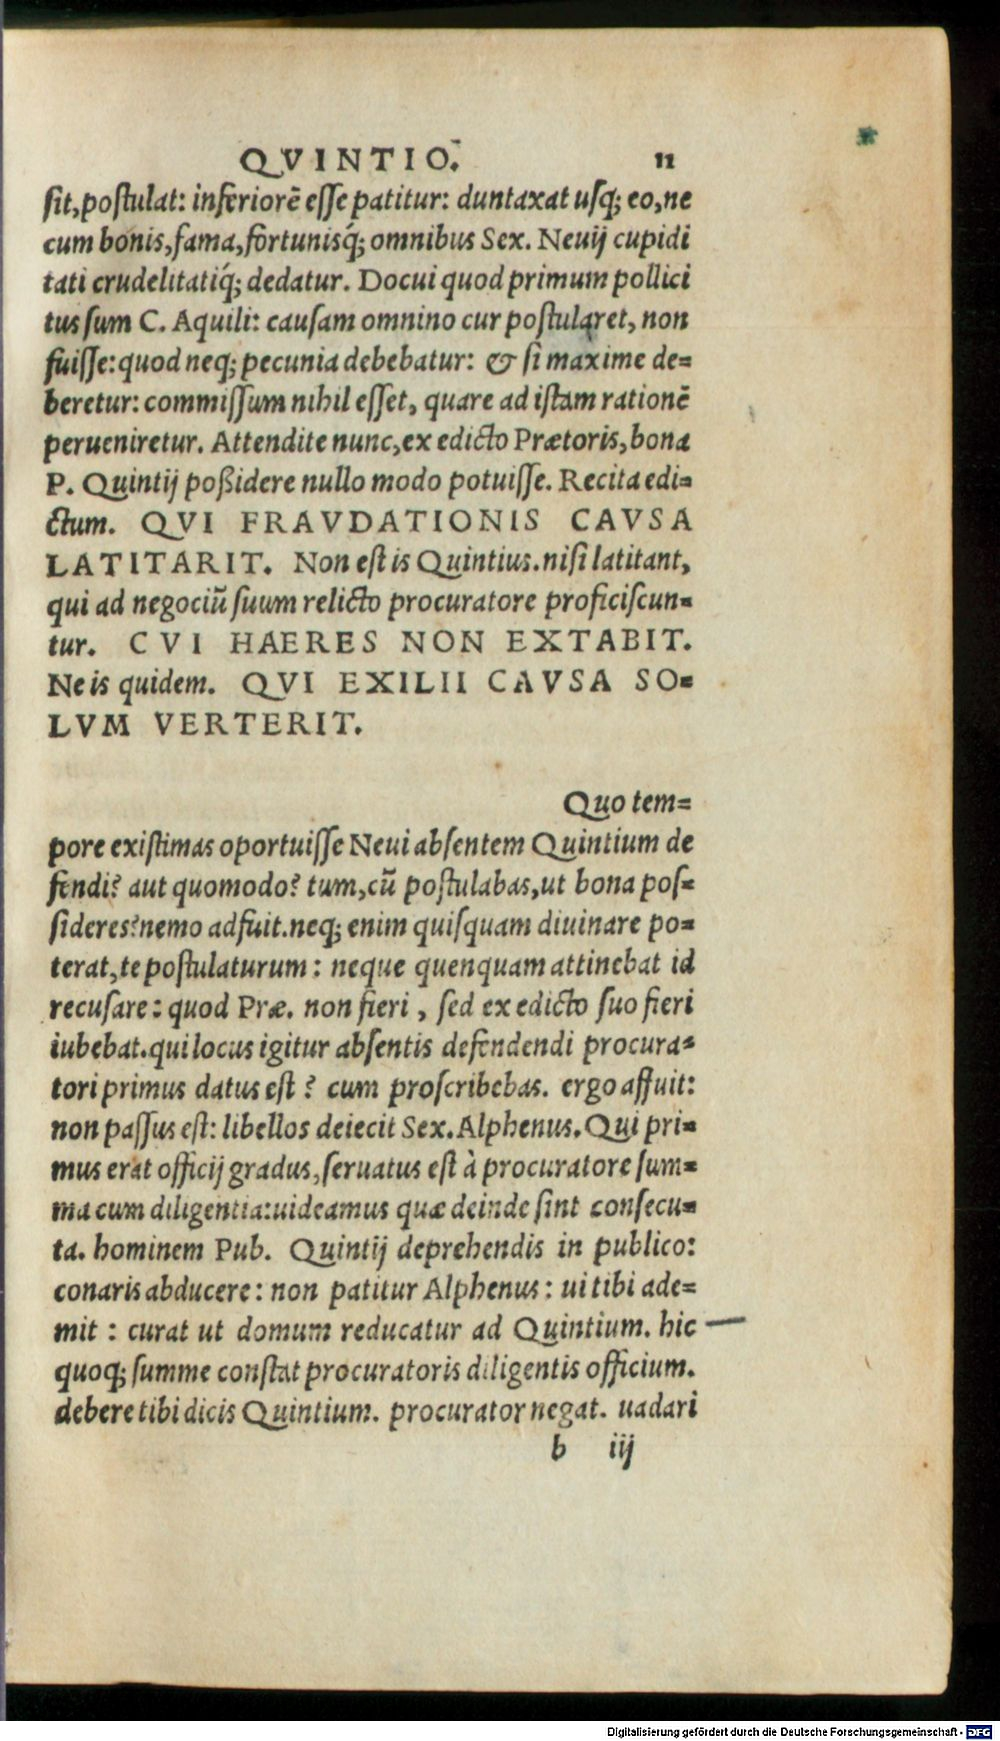 QVINTIO. 11
sit,postulat: inferiorē esse patitur: duntaxat usq; eo,ne
cum bonis,fama,fortunisq́; omnibus Sex. Neuij cupidi
tati crudelitatiq́; dedatur. Docui quod primum pollici
tus sum C. Aquili: causam omnino cur postularet, non
fuisse: quod neq; pecunia debebatur: & si maxime de=
beretur: commissum nihil esset, quare ad istam rationē
perueniretur. Attendite nunc,ex edicto Prætoris,bona
P. Quintij poßidere nullo modo potuisse. Recita edi=
ctum. QVI FRAVDATIONIS CAVSA
LATITARIT. Non est is Quintius.nisi latitant,
qui ad negociū suum relicto procuratore proficiscun=
tur. CVI HAERES NON EXTABIT.
Ne is quidem. QVI EXILII CAVSA SO=
LVM VERTERIT.
Quo tem=
pore existimas oportuisse Neui absentem Quintium de
fendi? aut quomodo? tum,cū postulabas,ut bona pos=
sideres?nemo adfuit.neq; enim quisquam diuinare po=
terat,te postulaturum: neque quenquam attinebat id
recusare: quod Præ. non fieri, sed ex edicto suo fieri
iubebat.qui locus igitur absentis defendendi procura=
tori primus datus est? cum proscribebas. ergo affuit:
non passus est: libellos deiecit Sex.Alphenus.Qui pri=
mus erat officij gradus,seruatus est à procuratore sum=
ma cum diligentia:uideamus quæ deinde sint consecu=
ta. hominem Pub. Quintij deprehendis in publico:
conaris abducere: non patitur Alphenus: ui tibi ade=
mit: curat ut domum reducatur ad Quintium. hic
quoq; summe constat procuratoris diligentis officium.
debere tibi dicis Quintium. procurator negat. uadari
b iij
Digitalisierung gefördert durch die Deutsche Forschungsgemeinschaft - DFG